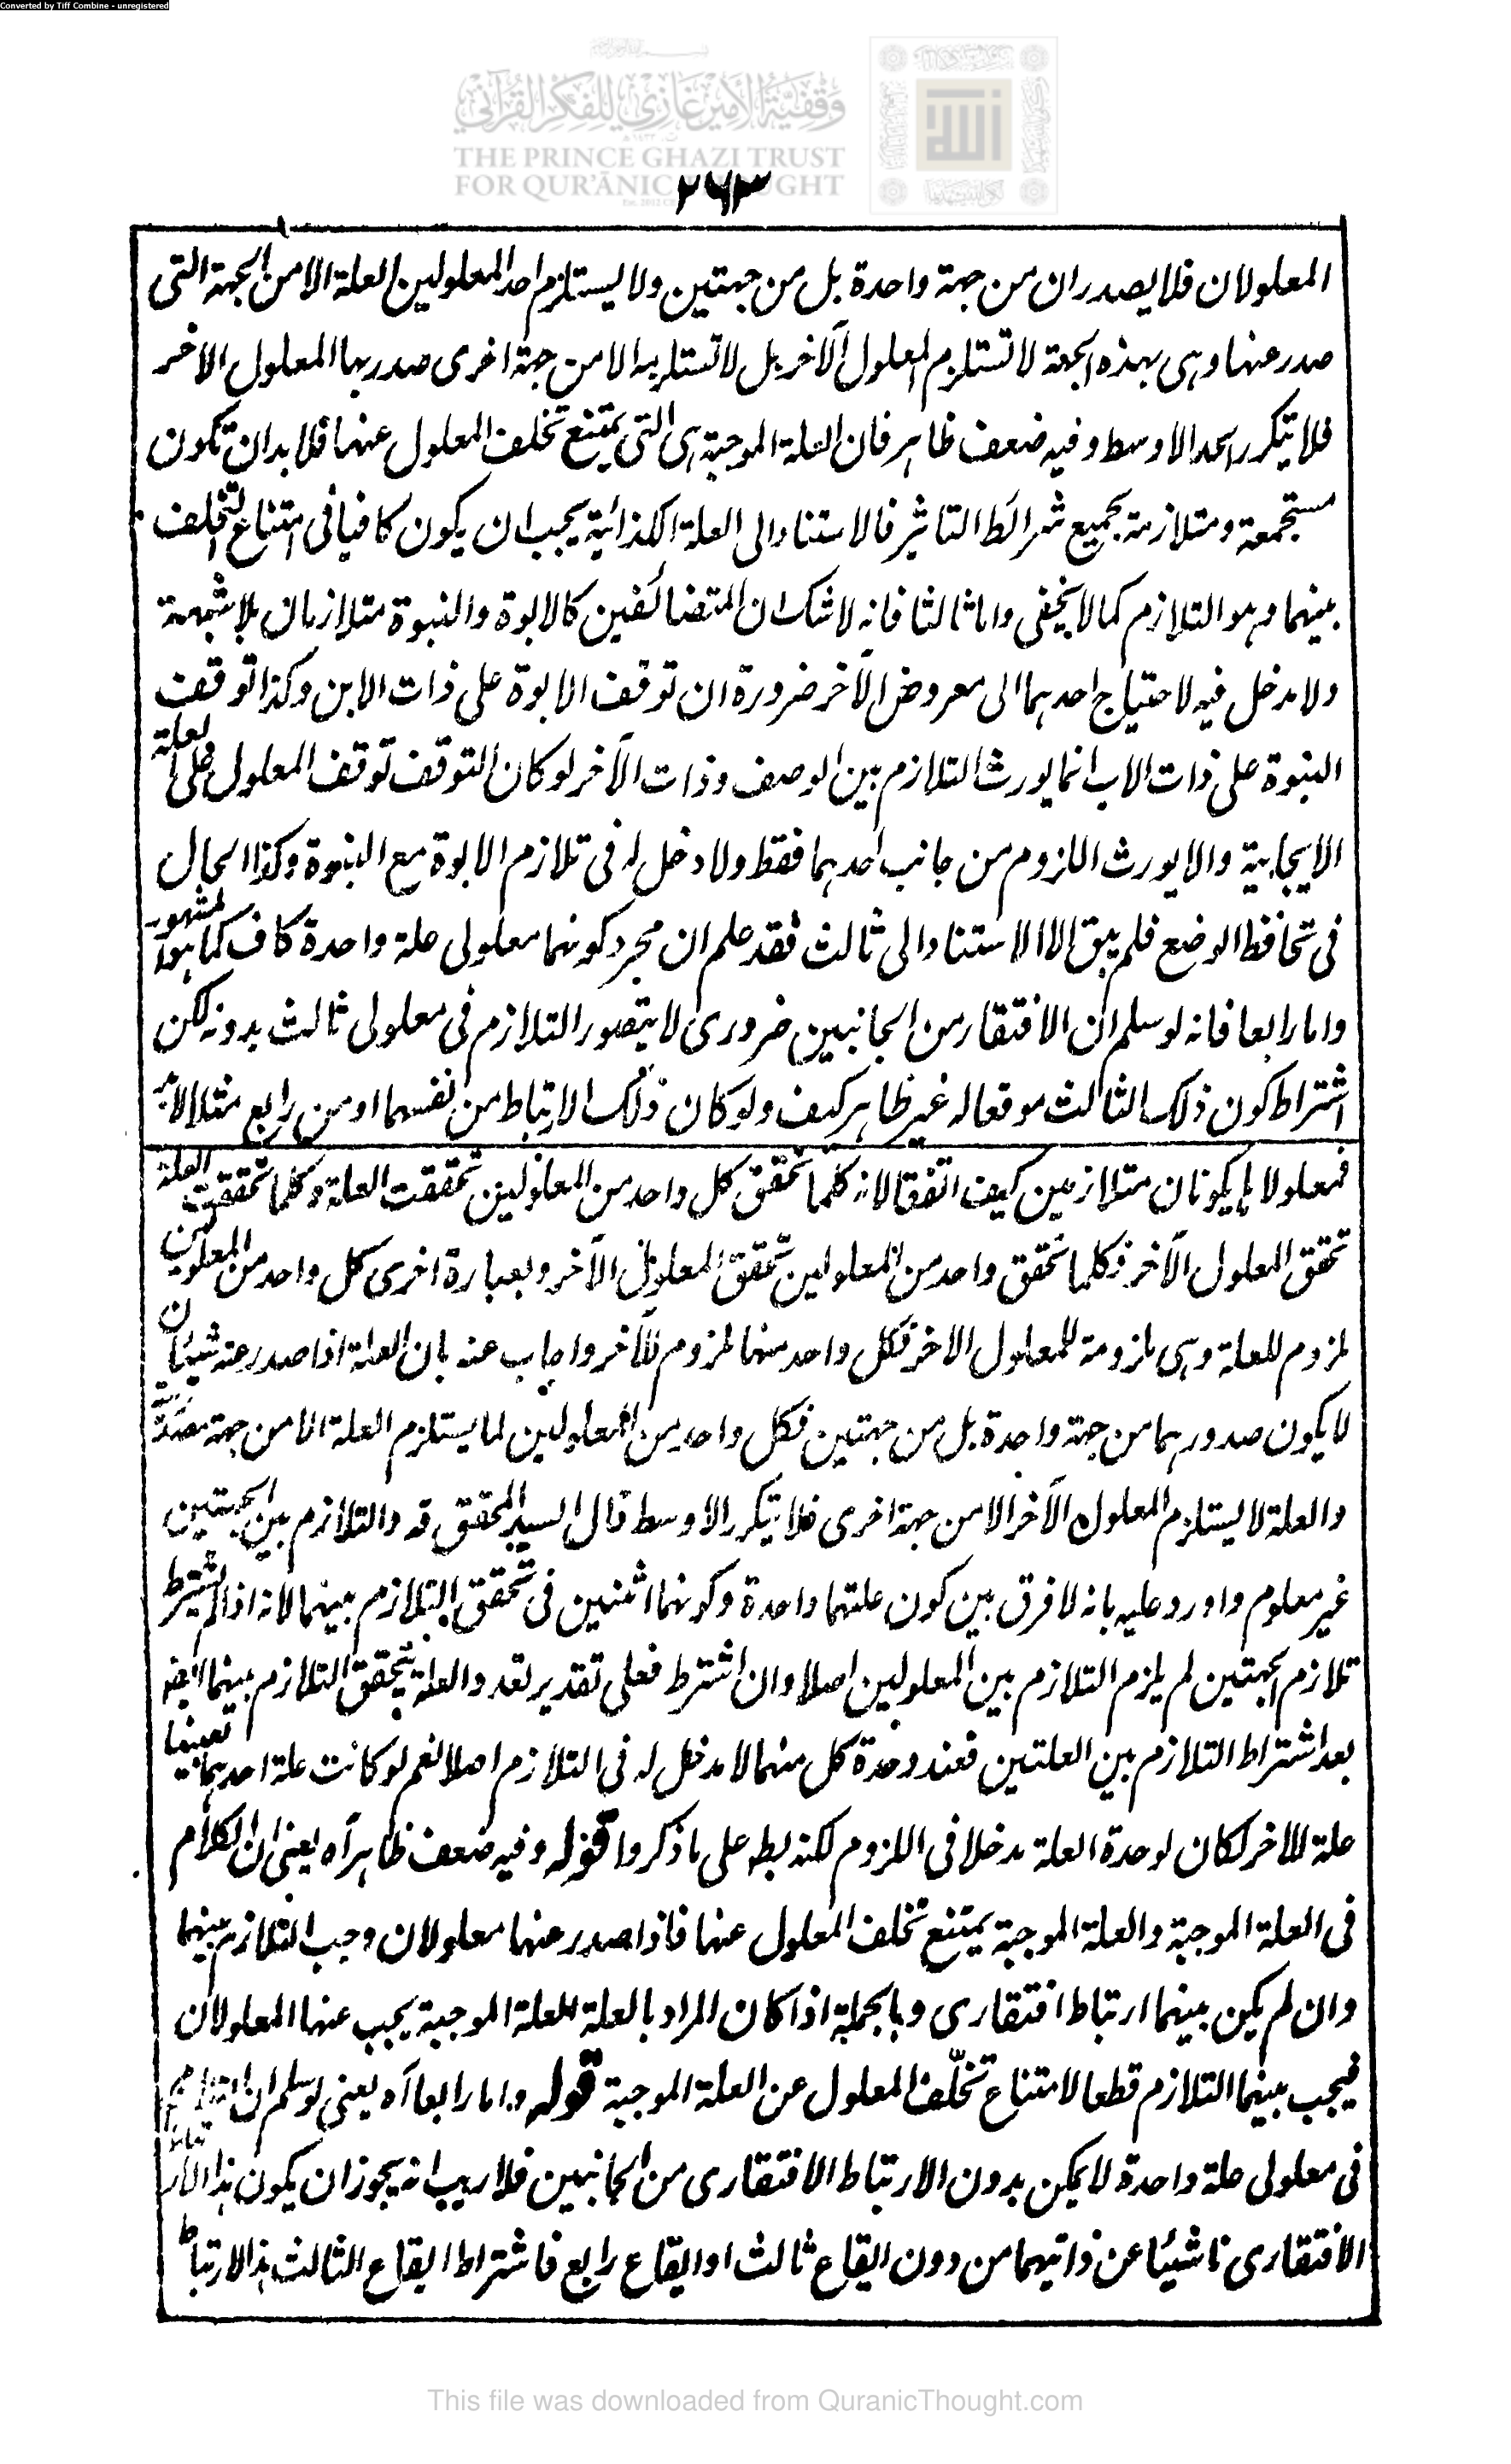 Converted by Tiff Combine - unregistered
وقفية الأمير غازي للفكر القرآني
THE PRINCE GHAZI TRUST
FOR QUR'ĀNIC THOUGHT
٢٦٣
المعلولان فلا يصدران من جهة واحدة بل من جهتين ولا يستلزم احد المعلولين العلة الا من الجهة التى
صدر عنها وهى بهذه الجهة لا تستلزم المعلول الآخر بل لا تستلزمه الا من جهة اخرى صدر بها المعلول الاخر
فلا يتكرر الحد الاوسط وفيه ضعف ظاهر فان العلة الموجبة هى التى يمتنع تخلف المعلول عنها فلا بد ان تكون
مستجمعة ومتلازمة بجميع شرائط التاثير فالاستناد الى العلة الكذائية يجب ان يكون كافيا فى امتناع التخلف
بينهما وهو التلازم كما لا يخفى واما ثالثا فانه لا شك ان المتضائفين كالابوة والبنوة متلازمان بلا شبهة
ولا مدخل فيه لاحتياج احدهما الى معروض الآخر ضرورة ان توقف الابوة على ذات الابن وكذا توقف
البنوة على ذات الاب انما يورث التلازم بين الوصف وذات الآخر لو كان التوقف توقف المعلول على العلة
الايجابية والا يورث اللزوم من جانب احدهما فقط ولا دخل له فى تلازم الابوة مع البنوة وكذا الحال
فى تحافظ الوضع فلم يبق الا الاستناد الى ثالث فقد علم ان مجرد كونهما معلولى علة واحدة كاف كما هو المشهور
واما رابعا فانه لو سلم ان الافتقار من الجانبين ضرورى لا يتصور التلازم فى معلولى ثالث بدونه لكن
اشتراط كون ذلك الثالث موقعا له غير ظاهر كيف ولو كان ذلك الارتباط من نفسهما او من رابع مثلا
فمعلولاها يكونان متلازمين كيف اتفقا لانه كلما تحقق كل واحد من المعلولين تحققت العلة وكلما تحققت العلة
تحقق المعلول الآخر فكلما تحقق واحد من المعلولين تحقق المعلول الآخر وبعبارة اخرى كل واحد من المعلولين
ملزوم للعلة وهى ملزومة للمعلول الاخر فكل واحد منهما ملزوم للآخر واجاب عنه بان العلة اذا صدر عنه شيئان
لا يكون صدورهما من جهة واحدة بل من جهتين فكل واحد من المعلولين لما يستلزم العلة الا من جهة
والعلة لا يستلزم المعلول الآخر الا من جهة اخرى فلا يتكرر الاوسط قال السيد المحقق قه والتلازم بين الجهتين
غير معلوم واورد عليه بانه لا فرق بين كون علتهما واحدة وكونهما اثنين فى تحقق التلازم بينهما لانه اذا لم يشترط
تلازم الجهتين لم يلزم التلازم بين المعلولين اصلا وان اشترط فعلى تقدير تعدد العلة يتحقق التلازم بينهما ايضا
بعد اشتراط التلازم بين العلتين فعند وحدة كل منهما لا مدخل له فى التلازم اصلا نعم لو كانت علة احدهما بعينها
علة للاخر لكان لوحدة العلة مدخلا فى اللزوم لكنه بطه على ما ذكروا قوله وفيه ضعف ظاهر آه يعنى ان الكلام
فى العلة الموجبة والعلة الموجبة يمتنع تخلف المعلول عنها فاذا صدر عنها معلولان وجب التلازم بينهما
وان لم يكن بينهما ارتباط افتقارى وبالجملة اذا كان المراد بالعلة العلة الموجبة يجب عنها المعلولان
فيجب بينهما التلازم قطعا لامتناع تخلّف المعلول عن العلة الموجبة قوله واما رابعا آه يعنى لو سلم ان التلازم
فى معلولى علة واحدة لا يمكن بدون الارتباط الافتقارى من الجانبين فلا ريب انه يجوز ان يكون هذا
الافتقارى ناشيئا عن ذاتيهما من دون ايقاع ثالث او ايقاع رابع فاشتراط ايقاع الثالث هذا الارتباط
This file was downloaded from QuranicThought.com